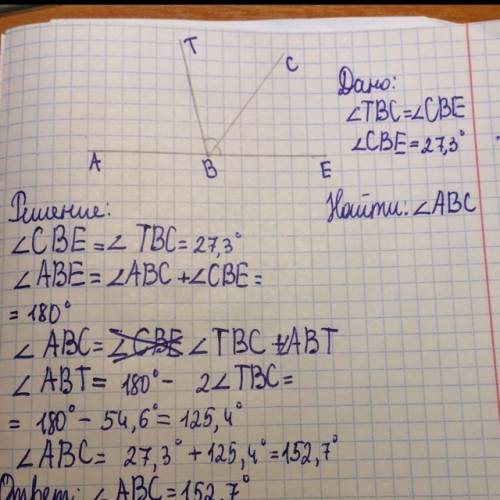 T
C
A
B
E
Дано:
∠TBC=∠CBE
∠CBE=27,3°
Найти: ∠ABC
Решение:
∠CBE=∠ TBC=27,3°
∠ABE=∠ABC+∠CBE=
=180°
∠ ABC=∠CBE ∠TBC +∠ABT
∠ABT= 180°- 2∠TBC=
= 180°- 54,6°= 125,4°
∠ABC= 27,3°+125,4°=152,7°
Ответ: ∠ABC=152,7°